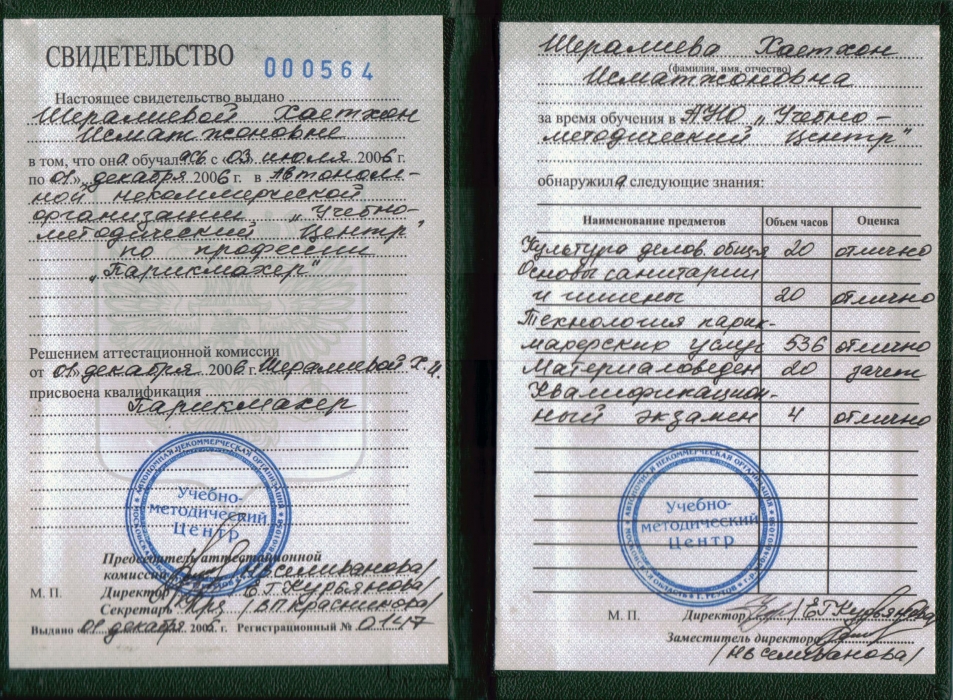 СВИДЕТЕЛЬСТВО
000564
Настоящее свидетельство выдано
Шералиевой Хаетхон
Исматжоновне
в том, что она обучалась с 03 июля 2006 г.
по «01» декабря 2006 г. в Автоном-
ной некоммерческой
организации „Учебно-
методический Центр"
по профессии
„Парикмахер"
Решением аттестационной комиссии
от «01» декабря 2006 г. Шералиевой Х.И.
присвоена квалификация
Парикмахер
Учебно-
методический
Центр
Председатель аттестационной
комиссии /Н В Селиванова/
М. П. Директор /Е Г Курьянова/
Секретарь /В П Красникова/
Выдано «01» декабря 2006 г. Регистрационный № 0147
Шералиева Хаетхон
(фамилия, имя, отчество)
Исматжоновна
за время обучения в АНО „Учебно-
методический Центр"
обнаружила следующие знания:
Наименование предметов Объем часов Оценка
Культура делов. общя 20 отлично
Основы санитарии
и гигиены 20 отлично
Технология парик-
махерских услуг 536 отлично
Материаловеден 20 зачет
Квалификацион-
ный экзамен 4 отлично
АВТОНОМНАЯ НЕКОММЕРЧЕСКАЯ ОРГАНИЗАЦИЯ
МОСКОВСКАЯ ОБЛАСТЬ Г. РЕУТОВ
Учебно-
методический
Центр
М. П. Директор /Е Г Курьянова/
Заместитель директора
/Н В Селиванова/